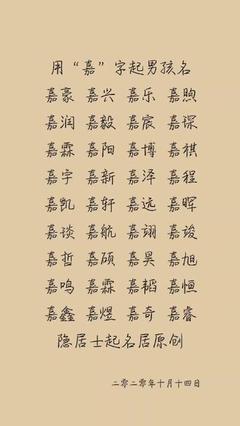 用“嘉”字起男孩名
嘉豪 嘉兴 嘉乐 嘉煦
嘉润 嘉毅 嘉宸 嘉琛
嘉霖 嘉阳 嘉博 嘉祺
嘉宇 嘉新 嘉泽 嘉程
嘉凯 嘉轩 嘉远 嘉晖
嘉谈 嘉航 嘉翊 嘉竣
嘉哲 嘉硕 嘉昊 嘉旭
嘉鸣 嘉霖 嘉韬 嘉恒
嘉鑫 嘉煜 嘉奇 嘉睿
隐居士起名居原创
二零二零年十月十四日